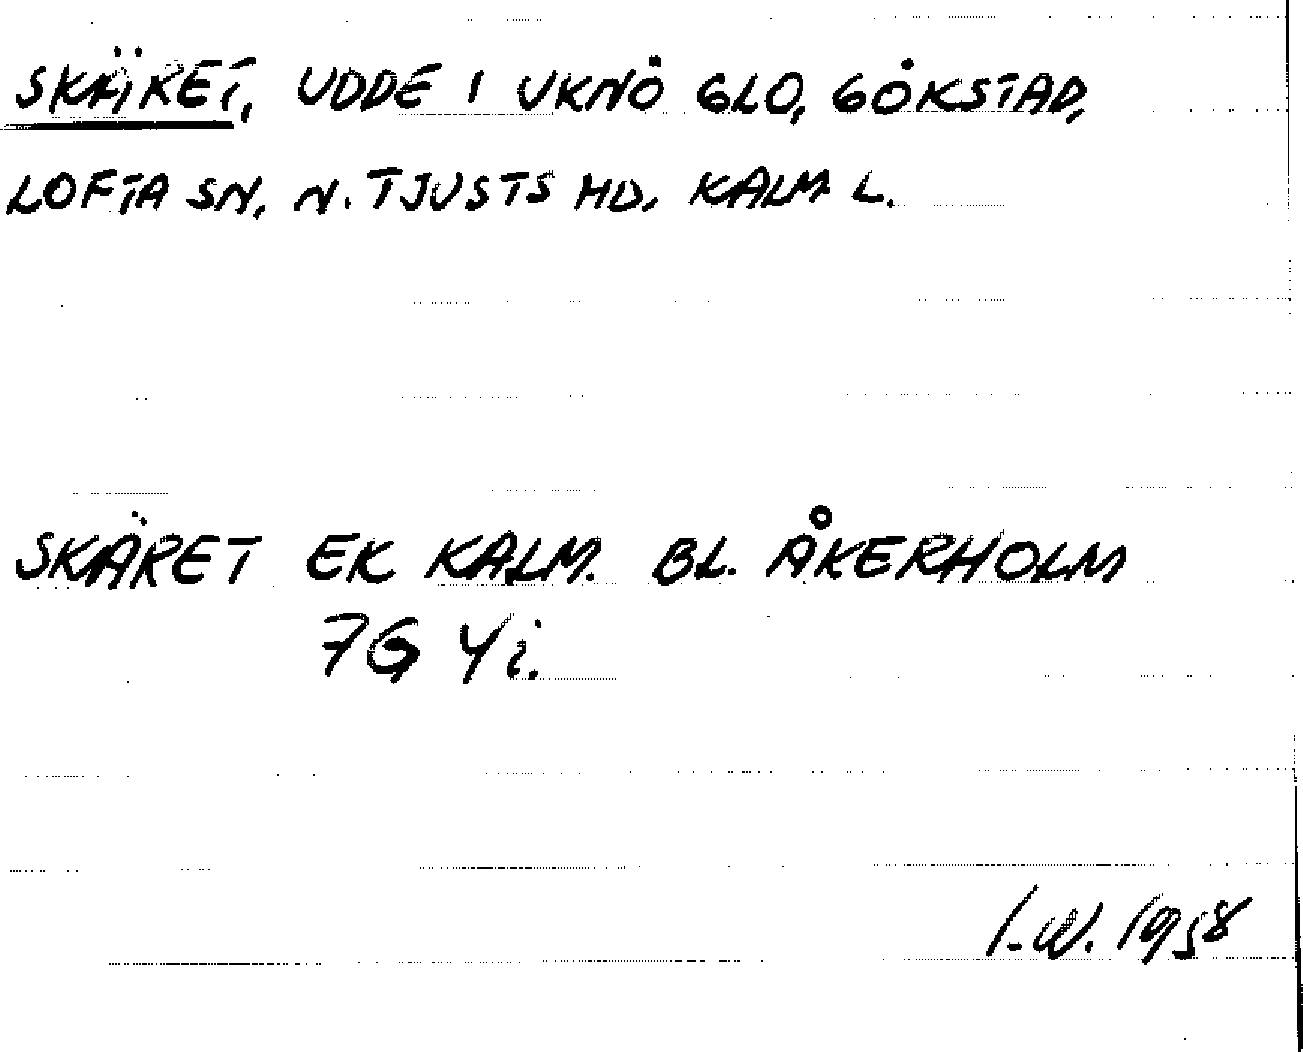 SKÄRET, UDDE I UKNÖ GLO, GÖKSTAD,
LOFTA SN, N. TJUSTS HD, KALM L.
SKÄRET EK KALM. BL. ÅKERHOLM
7G 4i.
I.W. 1958